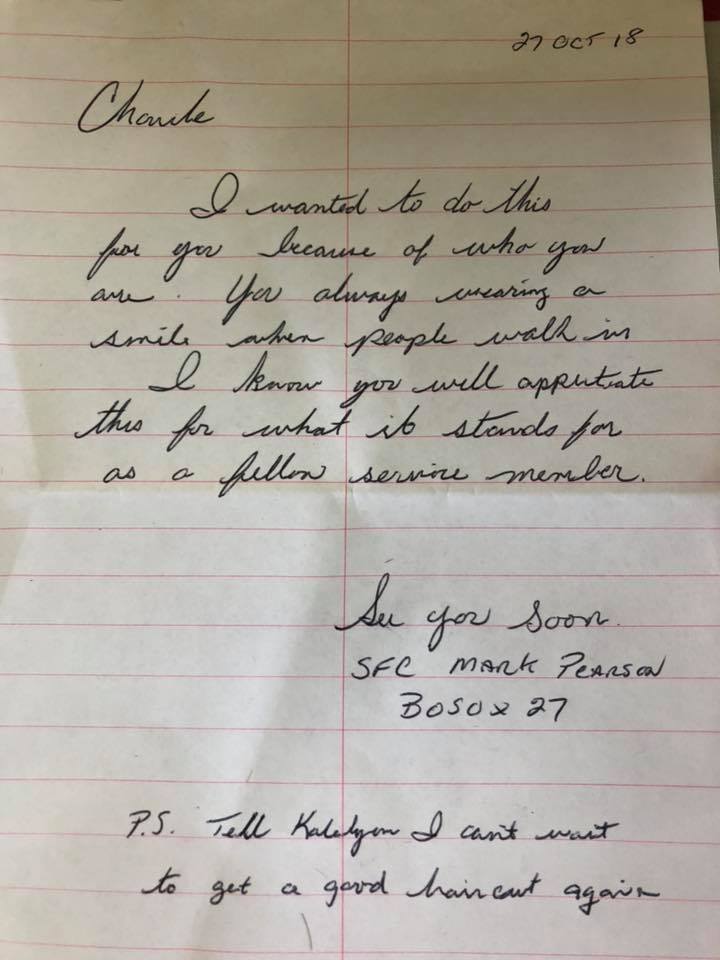 27 OCT 18
I wanted to do this
for you because of who you
are. You always wearing a
smile when people walk in
I know you will
this for what it stands for
as a fellow service member.
See you soon.
SFC MARK PEARSON
BOSOX 27
P.S. Tell I can't wait
to get a good haircut again